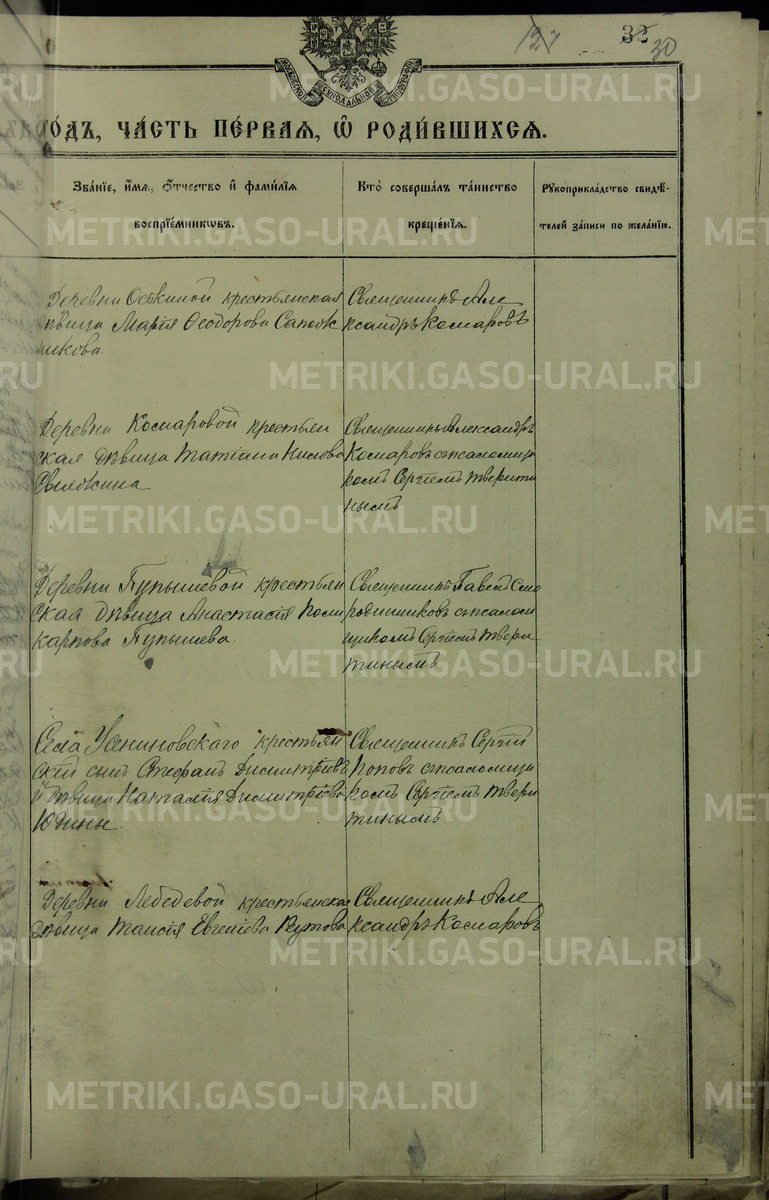 127 32 30
МОСКОВСКОЙ СѴНОДАЛЬНОЙ ТИПОГРАФІИ
ГО́ДЪ, ЧА́СТЬ ПЕ́РВАѦ, Ѡ҆ РОДИ́ВШИХСѦ.
Зва́нїе, и҆́мѧ, ѻ҆́тчество и҆ фами́лїѧ
воспрїе́мникѡвъ.
Кто̀ соверша́лъ та́инство
креще́нїѧ.
Рꙋкоприкла́дство свидѣ́-
телей за́писи по жела́нїю.
Деревни Оськиной крестьянская
дѣвица Марія Ѳеодорова Сапож
никова.
Священникъ Але
ксандръ Комаровъ
Деревни Комаровой крестьян
ская дѣвица Татіана Нилова
Священникъ Александръ
Комаровъ съ псаломщи
комъ Сергіемъ Тверити
нымъ
Деревни Пупышевой крестьян
ская дѣвица Анастасія Поли
карпова Пупышева.
Священникъ Павелъ Смо
родинниковъ съ псалом
щикомъ Сергіемъ Твери
тинымъ
Села Усениновскаго крестьян
скій сынъ Стефанъ Димитріевъ
и дѣвица Наталія Димитріева
Юдины.
Священникъ Сергій
Поповъ съ псаломщи
комъ Сергіемъ Твери
тинымъ
Деревни Лебедевой крестьянская
дѣвица Таисія Евгеніева Реутова
Священникъ Але
ксандръ Комаровъ
METRIKI.GASO-URAL.RU